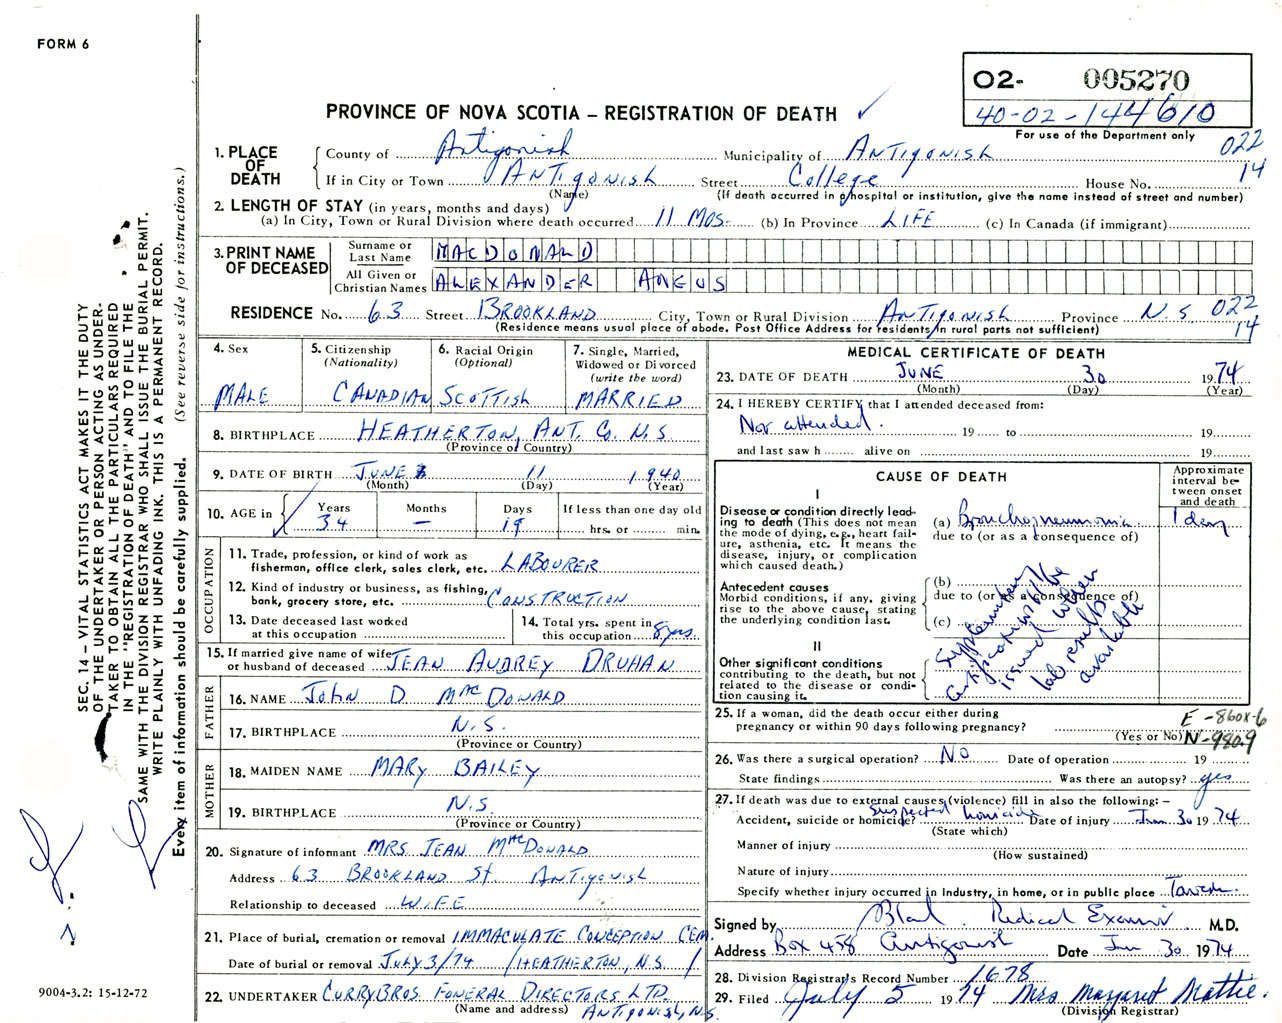 FORM 6
O2- 005270
40-02-144610
For use of the Department only
PROVINCE OF NOVA SCOTIA – REGISTRATION OF DEATH ✓
022
14
1. PLACE OF DEATH
County of Antigonish Municipality of ANTIGONISH
If in City or Town ANTIGONISH Street College House No.
(Name) (If death occurred in a hospital or institution, give the name instead of street and number)
2. LENGTH OF STAY (in years, months and days)
(a) In City, Town or Rural Division where death occurred 11 MOS. (b) In Province LIFE (c) In Canada (if immigrant)
3. PRINT NAME OF DECEASED
Surname or Last Name MACDONALD
All Given or Christian Names ALEXANDER ANGUS
RESIDENCE No. 63 Street BROOKLAND City, Town or Rural Division ANTIGONISH Province N.S. 022
14
(Residence means usual place of abode. Post Office Address for residents in rural parts not sufficient)
4. Sex
MALE
5. Citizenship
(Nationality)
CANADIAN
6. Racial Origin
(Optional)
SCOTTISH
7. Single, Married,
Widowed or Divorced
(write the word)
MARRIED
8. BIRTHPLACE HEATHERTON, ANT. Co. N.S.
(Province or Country)
9. DATE OF BIRTH JUNE 11 1940
(Month) (Day) (Year)
10. AGE in
Years Months Days If less than one day old
34 – 19 hrs. or min.
OCCUPATION
11. Trade, profession, or kind of work as
fisherman, office clerk, sales clerk, etc. LABOURER
12. Kind of industry or business, as fishing,
bank, grocery store, etc. CONSTRUCTION
13. Date deceased last worked
at this occupation
14. Total yrs. spent in
this occupation 8 yrs.
15. If married give name of wife
or husband of deceased JEAN AUDREY DRUHAN
FATHER
16. NAME JOHN D MacDONALD
17. BIRTHPLACE N.S.
(Province or Country)
MOTHER
18. MAIDEN NAME MARY BAILEY
19. BIRTHPLACE N.S.
(Province or Country)
20. Signature of informant MRS JEAN MacDONALD
Address 63 BROOKLAND St. ANTIGONISH
Relationship to deceased WIFE
21. Place of burial, cremation or removal IMMACULATE CONCEPTION CEM.
Date of burial or removal JULY 3/74 /HEATHERTON, N.S. /
22. UNDERTAKER CURRY BROS FUNERAL DIRECTORS LTD.
(Name and address) ANTIGONISH, N.S.
MEDICAL CERTIFICATE OF DEATH
23. DATE OF DEATH JUNE 30 1974
(Month) (Day) (Year)
24. I HEREBY CERTIFY that I attended deceased from:
Not attended. 19 to 19
and last saw h alive on 19
CAUSE OF DEATH
Approximate
interval be-
tween onset
and death
I
Disease or condition directly lead-
ing to death (This does not mean
the mode of dying, e.g., heart fail-
ure, asthenia, etc. It means the
disease, injury, or complication
which caused death.)
(a) Bronchopneumonia 1 day
due to (or as a consequence of)
Antecedent causes
Morbid conditions, if any, giving
rise to the above cause, stating
the underlying condition last.
(b)
due to (or as a consequence of)
(c)
II
Other significant conditions
contributing to the death, but not
related to the disease or condi-
tion causing it.
Supplementary
certificate to be
issued when
lab results
available
25. If a woman, did the death occur either during
pregnancy or within 90 days following pregnancy?
(Yes or No)
E - 860X-6
N-980.9
26. Was there a surgical operation? No Date of operation 19
State findings Was there an autopsy? yes
27. If death was due to external causes (violence) fill in also the following: –
Accident, suicide or homicide? suspected homicide Date of injury Jun 30 1974
(State which)
Manner of injury
(How sustained)
Nature of injury
Specify whether injury occurred in industry, in home, or in public place Tavern
Signed by Medical Examiner M.D.
Address Box 458 Antigonish Date Jun 30 1974
28. Division Registrar's Record Number 1678
29. Filed July 5 1974 Mrs Margaret Mattie.
(Division Registrar)
SEC. 14 – VITAL STATISTICS ACT MAKES IT THE DUTY
OF THE UNDERTAKER OR PERSON ACTING AS UNDER-
TAKER TO OBTAIN ALL THE PARTICULARS REQUIRED
IN THE "REGISTRATION OF DEATH" AND TO FILE THE
SAME WITH THE DIVISION REGISTRAR WHO SHALL ISSUE THE BURIAL PERMIT.
WRITE PLAINLY WITH UNFADING INK. THIS IS A PERMANENT RECORD.
Every item of information should be carefully supplied. (See reverse side for instructions.)
9004-3.2: 15-12-72